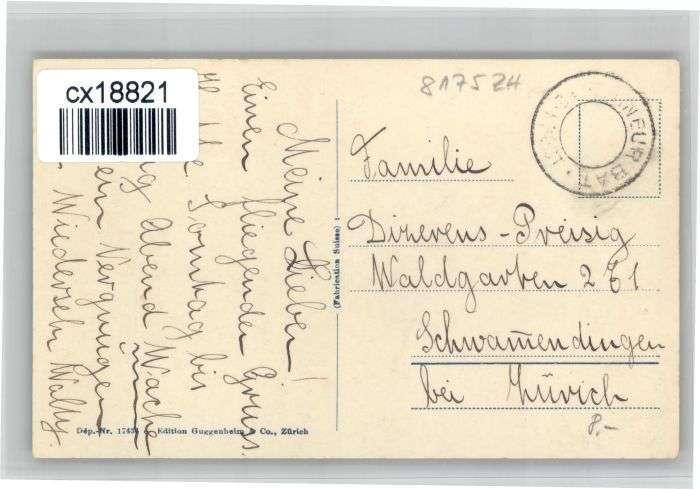 cx18821
8175 ZH
NEUR BAT.
Meine Lieben!
Einen fliegenden Gruss.
Sonntag bis
Abend Wache
Vergnügen
Wiedersehn Wally.
(Fabrication Suisse)
Familie
Dizerens-Preisig
Waldgarten 261
Schwamendingen
bei Zürich
P.-
Dép.-Nr. 17434 Edition Guggenheim & Co., Zürich